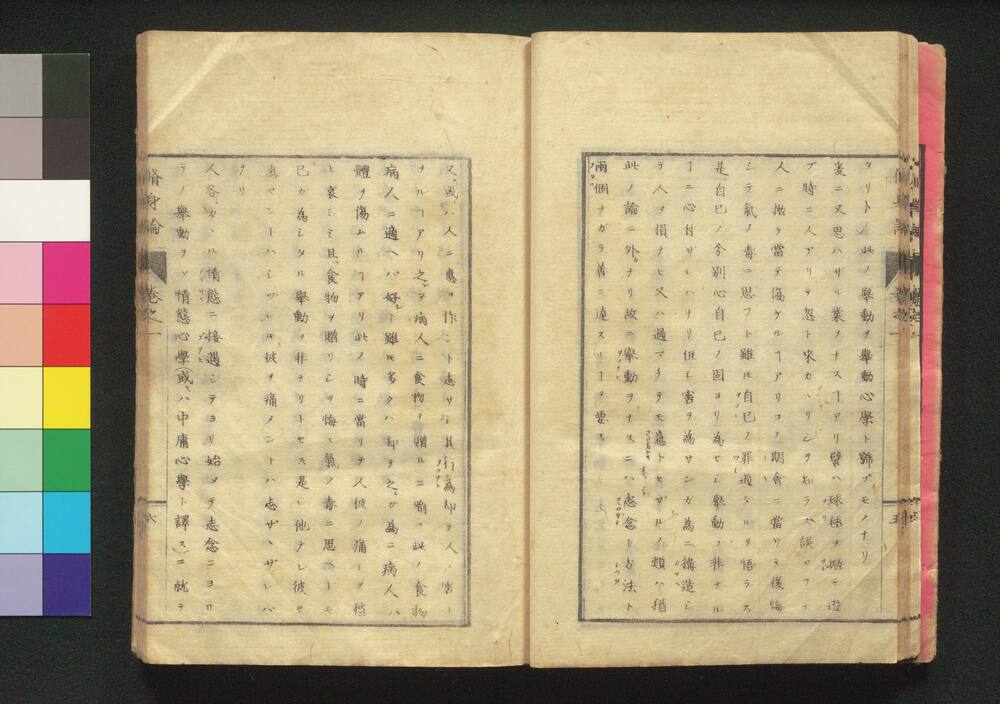 タリト此ノ擧動ヲ擧動心學ト號ブモノナリ
爰ニ又思ハザル業ヲナスアリ譬ハ球毬ヲ抛テ遊
ブ時ニ人アリテ忽ト來カリシヲ知ラス誤テ
人ニ抛ケ當テ傷ケルアリコノ期會ニ當リテ後悔
シテ氣ノ毒ニ思フト雖モ自已ノ罪過ナルヲ悟ラス
是自已ノ分別心自已ノ固ヨリ為セシ擧動ニ非ナル
ニ心付ザレハナリ但シ害ヲ為サンガ為ニ搆造シ
テ人ヲ損ナヒ又ハ過マチテモ應トセザルノ類ハ猶
此ノ論ニ外ナリ故ニ擧動ヲナスニハ志念ト方法ト
兩個ナガラ善ニ達スルヲ要ス
又或ハ人ニ惠ヲ作ント志サシ其行為却テ人ノ害ト
ナルアリ之ヲ病人ニ食物ヲ贈ルニ喩フ此ノ食物
病人ニ適ヘバ好シト雖モ多クハ却テ之ガ為ニ病人ハ
體ヲ傷ムルアリ此ノ時ニ當リテ人彼ノ痛ヲ愁
ヒ哀シミ且食物ヲ贈リシヲ悔ミ氣ノ毒ニ思ヘトモ
已カ為シタル擧動ニ非ナリトセス是レ他ナシ彼ヲ
ハミヅレモ彼ヲ痛メントハ志ザサヾレバ
ナリ
人各カヽル情態ニ接遇シテヨリ始メテ志念ニヨリ
テノ擧動ヲバ情態心學(或ハ中庸心學ト譯ス)ニ就テ
脩身論 卷之一
六